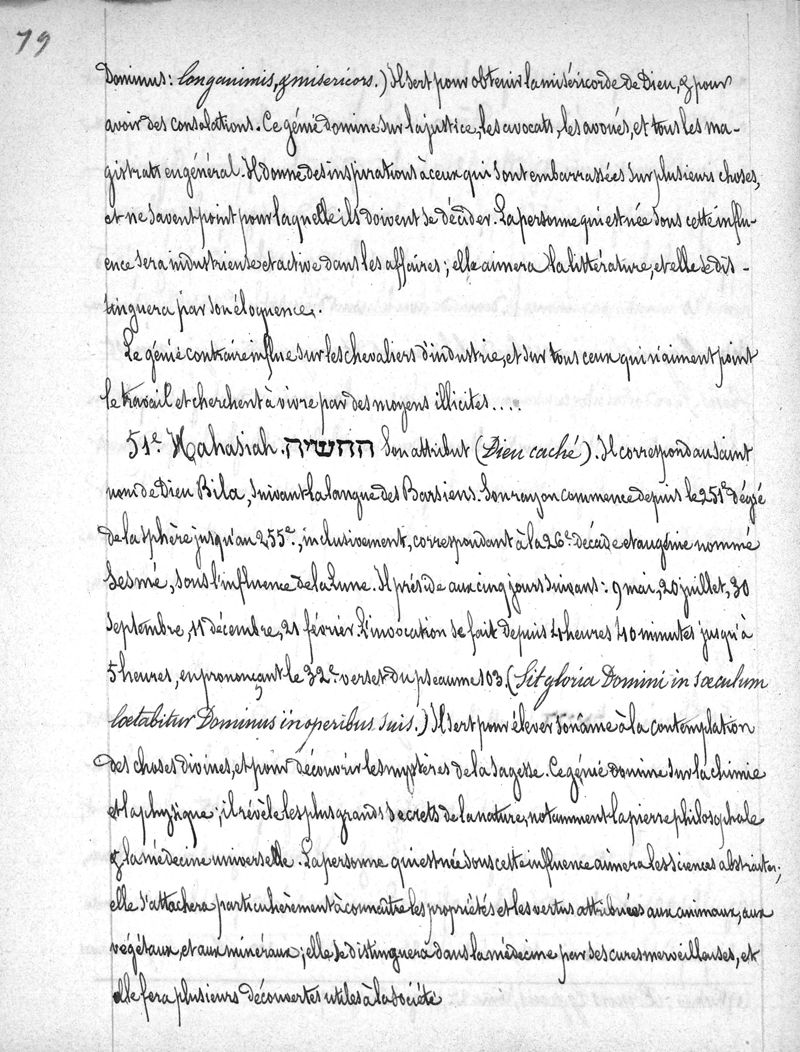 79
Dominus: longanimis, & misericors.) Il sert pour obtenir la miséricorde de Dieu, & pour
avoir des consolations. Ce génie domine sur la justice, les avocats, les avoués, et tous les ma-
gistrats en général. Il donne des inspirations à ceux qui sont embarrassées sur plusieurs choses,
et ne savent point pour laquelle ils doivent se décider. La personne qui est née sous cette influ-
ence sera industrieuse et active dans les affaires; elle aimera la littérature, et elle se dis-
tinguera par son éloquence.
Le génie contraire influe sur les chevaliers d'industrie, et sur tous ceux qui n'aiment point
le travail et cherchent à vivre par des moyens illicites....
51e. Hahasiah. החשיה Son attribut (Dieu caché). Il correspond au saint
nom de Dieu Bila, suivant la langue des Barsiens. Son rayon commence depuis le 251e dégré
de la sphère jusqu'au 255e., inclusivement, correspondant à la 26e. décade et au génie nommé
Sesmé, sous l'influence de la Lune. Il préside aux cinq jours suivans: 9 mai, 20 juillet, 30
septembre, 11 décembre, 21 février. L'invocation se fait depuis 4 heures 40 minutes jusqu'à
5 heures, en prononçant le 32e. verset du pseaume 103. (Sit gloria Domini in sœculum
lœtabitur Dominus in operibus suis.) Il sert pour élever son ame à la contemplation
des choses divines, et pour découvrir les mystères de la sagesse. Ce génie domine sur la chimie
et la physique; il révèle les plus grands secrets de la nature, notamment la pierre philosophale
& la médecine universelle. La personne qui est née sous cette influence aimera les sciences abstraites;
elle s'attachera particulièrement à connaître les propriétés et les vertus attribuées aux animaux, aux
végétaux, et aux minéraux; elle se distinguera dans la médecine par ses cures merveilleuses, et
elle fera plusieurs découvertes utiles à la société